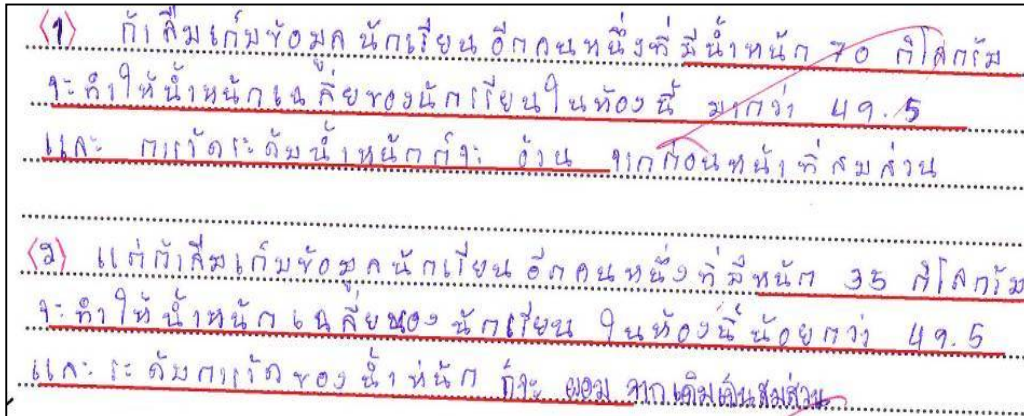 (1) ถ้าลืมเก็บข้อมูลนักเรียนอีกคนหนึ่งที่มีน้ำหนัก 70 กิโลกรัม
จะทำให้น้ำหนักเฉลี่ยของนักเรียนในห้องนี้ มากว่า 49.5
และ การวัดระดับน้ำหนักก็จะ อ้วน จากก่อนหน้าที่สมส่วน
(2) แต่ถ้าลืมเก็บข้อมูลนักเรียน อีกคนหนึ่งที่มีหนัก 35 กิโลกรัม
จะทำให้น้ำหนักเฉลี่ยของนักเรียน ในห้องนี้น้อยกว่า 49.5
และ ระดับการวัดของน้ำหนัก ก็จะ ผอม จากเดิมเป็นสมส่วน